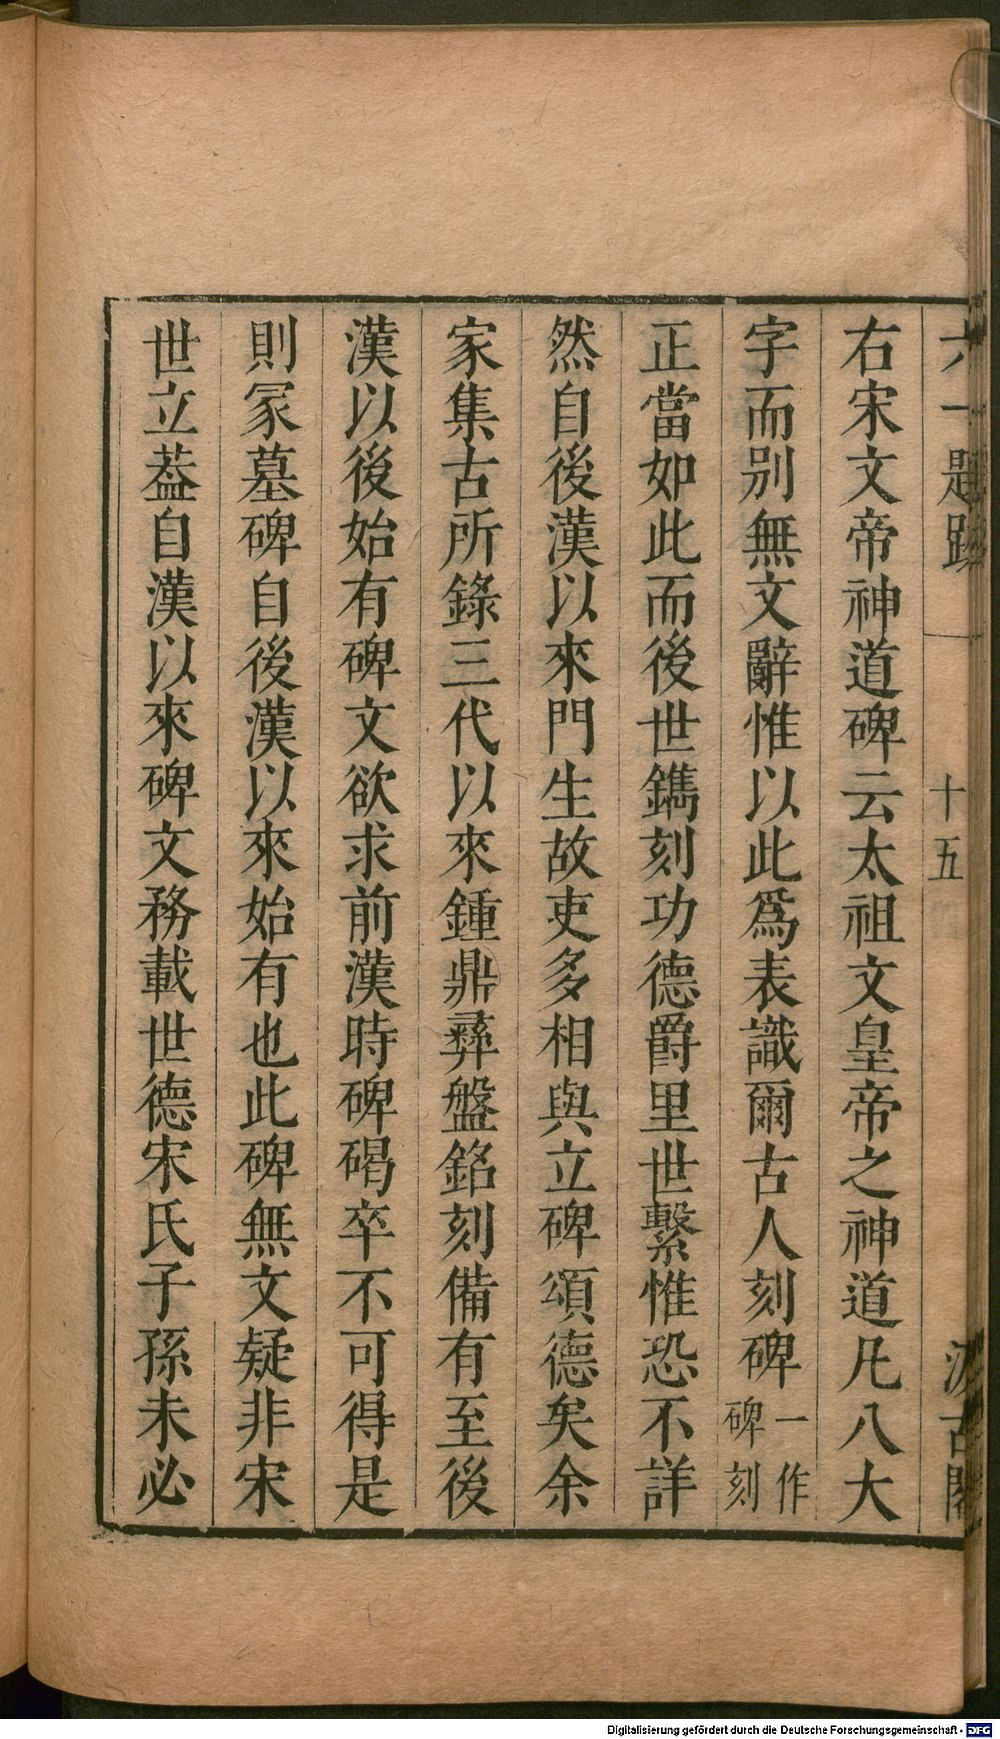 六一題跋 十五 汲古閣
右宋文帝神道碑云太祖文皇帝之神道凡八大
字而别無文辭惟以此爲表識爾古人刻碑一作碑刻
正當如此而後世鐫刻功德爵里世繫惟恐不詳
然自後漢以來門生故吏多相與立碑頌德矣余
家集古所錄三代以來鍾鼎彝盤銘刻備有至後
漢以後始有碑文欲求前漢時碑碣卒不可得是
則冡墓碑自後漢以來始有也此碑無文疑非宋
世立葢自漢以來碑文務載世德宋氏子孫未必
Digitalisierung gefördert durch die Deutsche Forschungsgemeinschaft - DFG